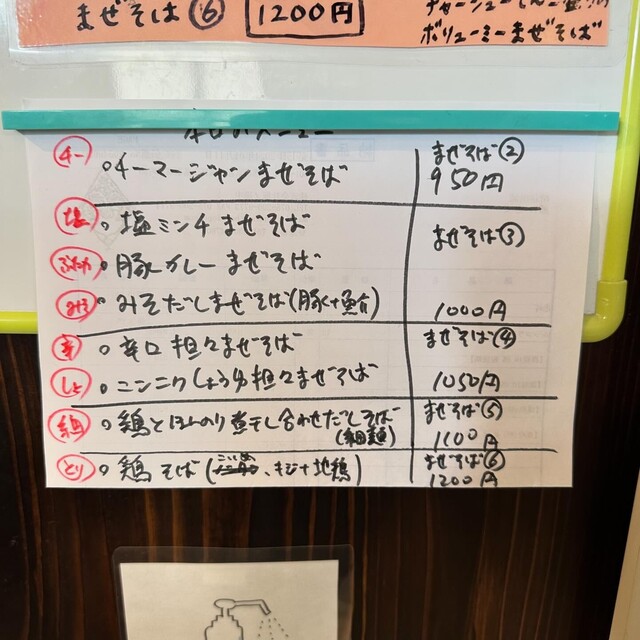 まぜそば⑥ 1200円
ボリューミーまぜそば
本日のメニュー
チー ○チーマージャンまぜそば まぜそば② 950円
塩 ○塩ミンチまぜそば まぜそば③
ぶたカ ○豚カレーまぜそば
みそ ○みそだしまぜそば(豚+魚介) 1000円
辛 ○辛口担々まぜそば まぜそば④
しょ ○ニンニクしょうゆ担々まぜそば 1050円
○鶏とほんのり煮干し合わせだしそば まぜそば⑤
(細麺) 1100円
とり ○鶏そば(、キジ+地鶏) まぜそば⑥
1200円